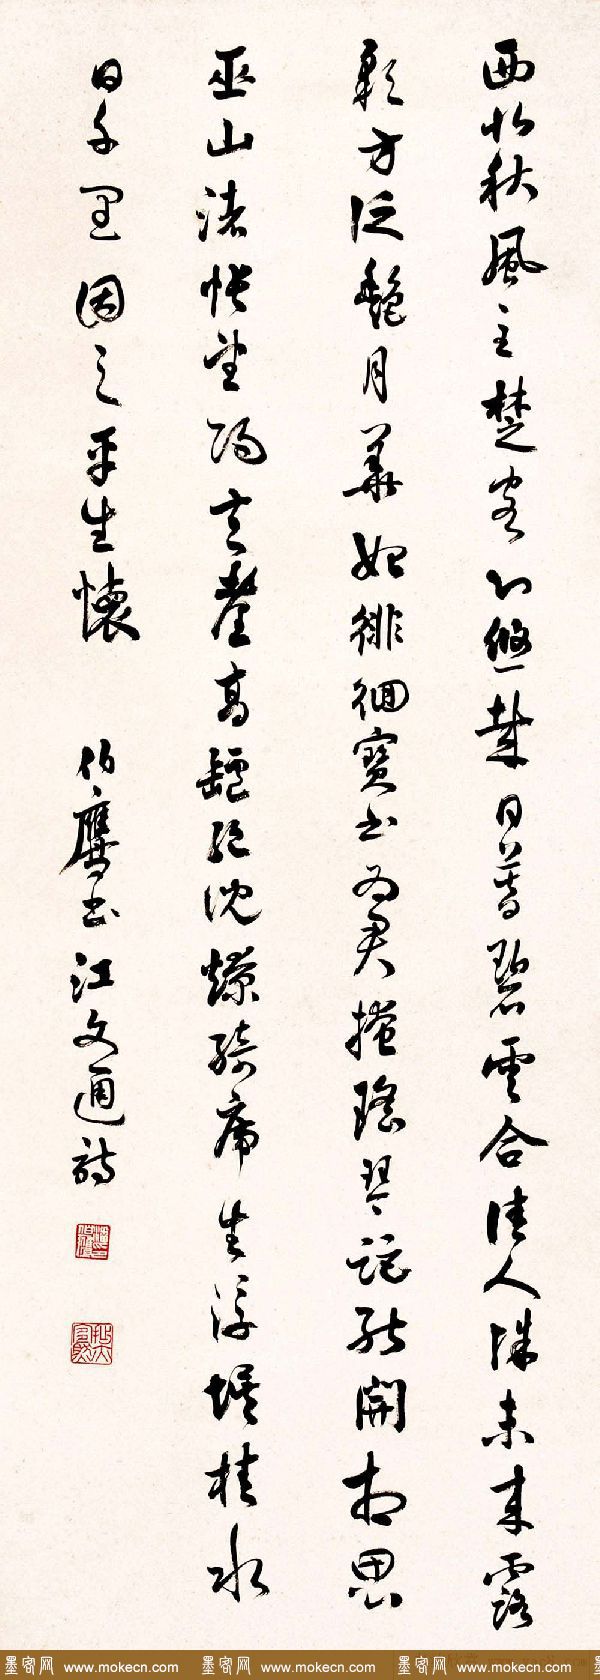 西北秋風至楚客心悠哉日暮碧雲合佳人殊未來露
彩方泛艷月華始徘徊寶書為君掩瑤琴詎能開相思
巫山渚悵望陽云臺高罏絕沈燎綺席生浮埃桂水
日千里因之平生懷 伯鷹書江文通詩
墨客网 www.mokecn.com 墨客网 www.mokecn.com 墨客网 www.mokecn.com